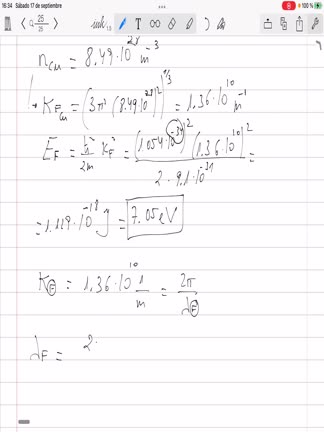 16:34 Sábado 17 de septiembre 100 %
25
n_cu = 8.49·10^28 m^-3
↳ K_F_cu = (3π² (8.49·10^28))^1/3 = 1.36·10^10 m^-1
E_F = ħ²/2m K_F² = (1.054·10^-34)² (1.36·10^10)² / 2·9.1·10^-31 =
= 1.119·10^-18 J = 7.05 eV
K_F = 1.36·10^10 1/m = 2π/λ_F
λ_F = 2·